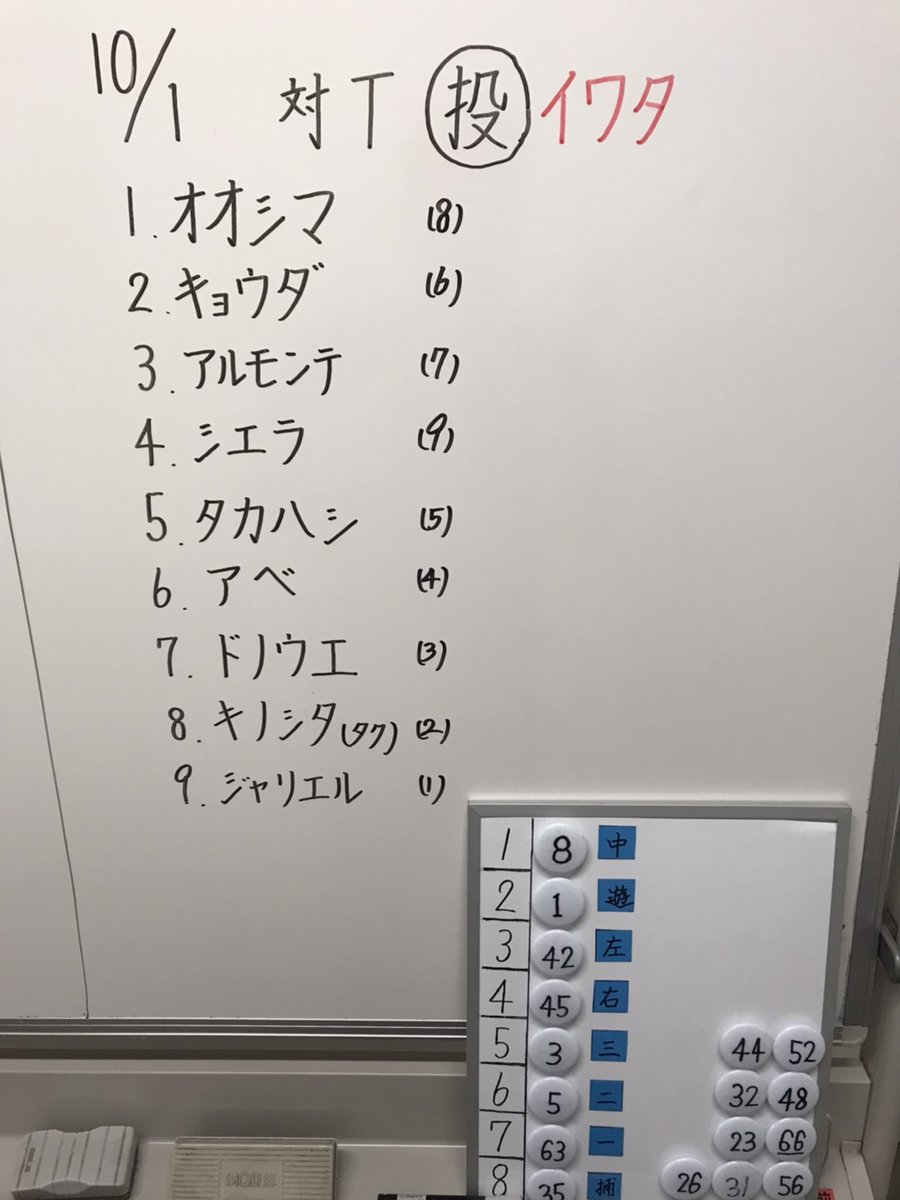 10/1 対T 投 イワタ
1.オオシマ (8)
2.キョウダ (6)
3.アルモンテ (7)
4.シエラ (9)
5.タカハシ (5)
6.アベ (4)
7.ドノウエ (3)
8.キノシタ(タク) (2)
9.ジャリエル (1)
1 8 中
2 1 遊
3 42 左
4 45 右
5 3 三 44 52
6 5 二 32 48
7 63 一 23 66
8 35 捕 26 31 56